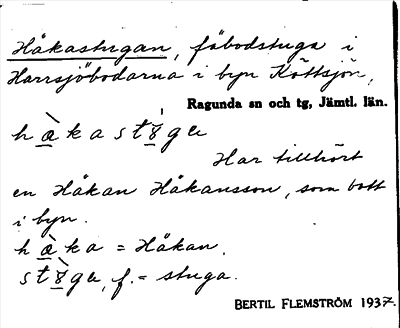 Håkastugan, fäbodstuga i
Harrsjöbodarna i byn Köttsjön,
Ragunda sn och tg, Jämtl. län.
hàkastɣ̀ga
Har tillhört
en Håkan Håkansson, som bott
i byn.
hàka = Håkan.
stɣ̀ga, f. = stuga.
BERTIL FLEMSTRÖM 1937.